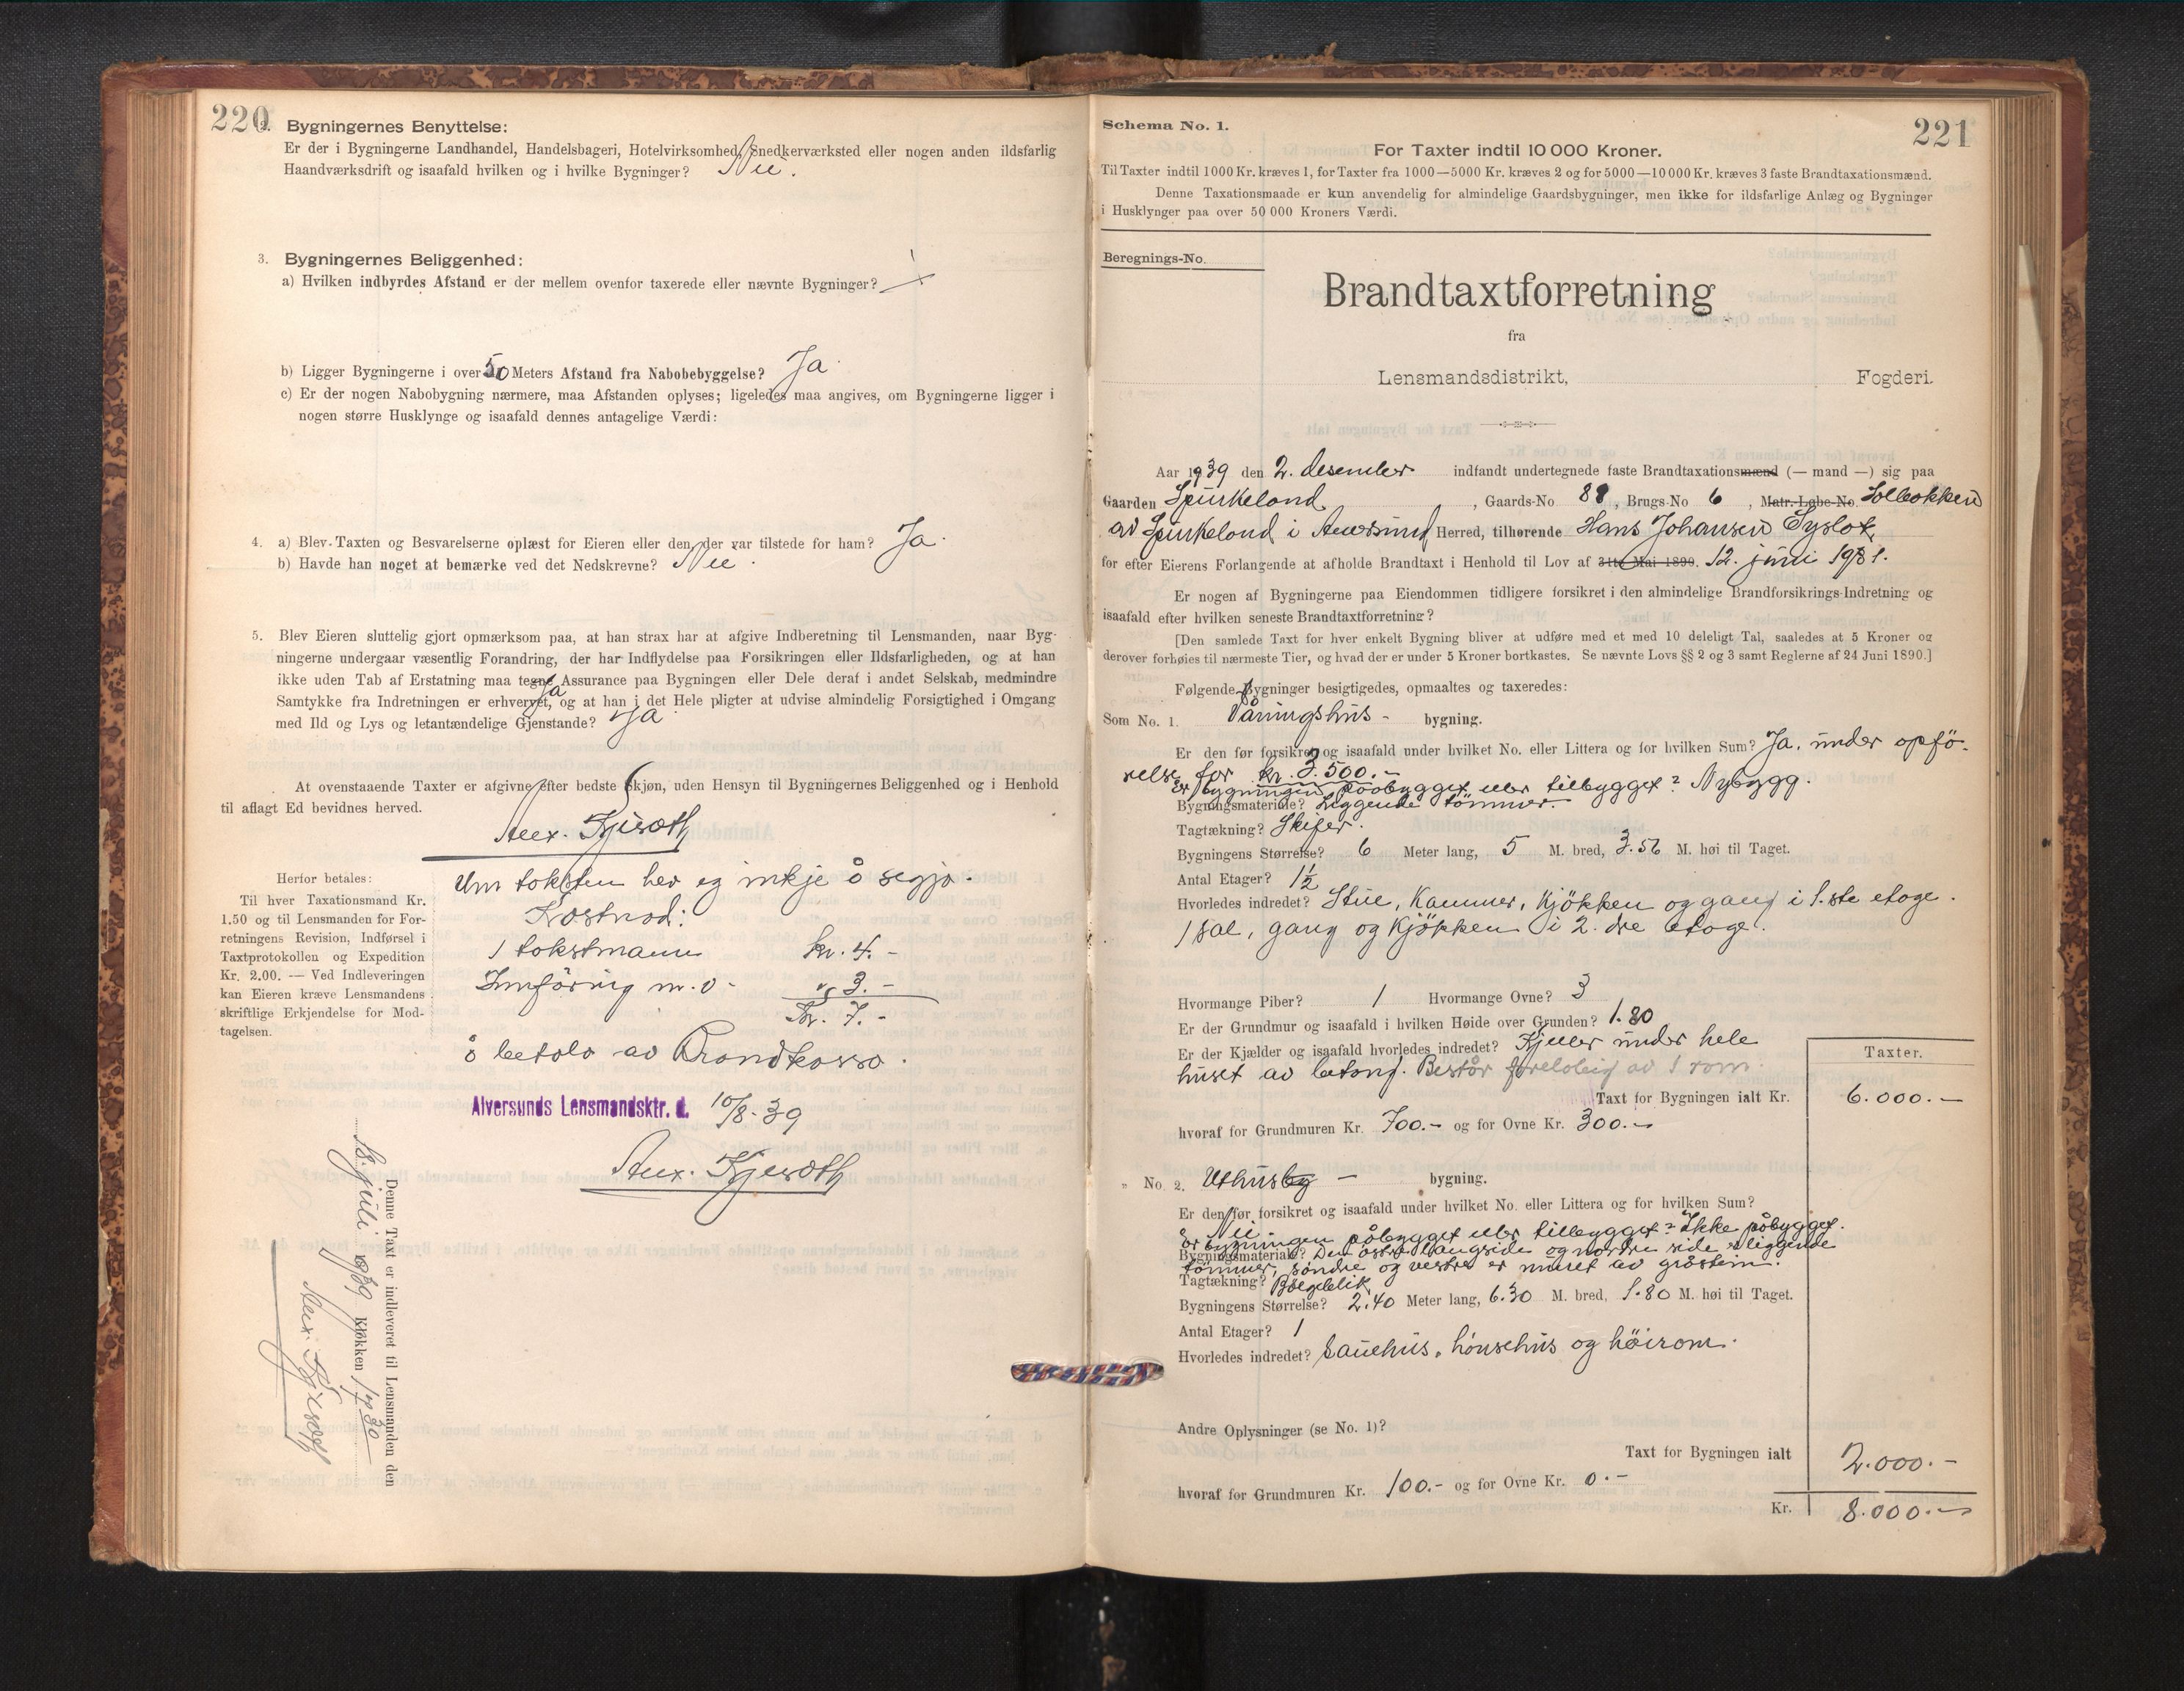 220
2. Bygningernes Benyttelse:
Er der i Bygningerne Landhandel, Handelsbageri, Hotelvirksomhed, Snedkerværksted eller nogen anden ildsfarlig
Haandværksdrift og isaafald hvilken og i hvilke Bygninger? Nei.
3. Bygningernes Beliggenhed:
a) Hvilken indbyrdes Afstand er der mellem ovenfor taxerede eller nævnte Bygninger?
b) Ligger Bygningerne i over 50 Meters Afstand fra Nabobebyggelse? Ja
c) Er der nogen Nabobygning nærmere, maa Afstanden oplyses; ligeledes maa angives, om Bygningerne ligger i
nogen større Husklynge og isaafald dennes antagelige Værdi:
4. a) Blev Taxten og Besvarelserne oplæst for Eieren eller den, der var tilstede for ham? Ja.
b) Havde han noget at bemærke ved det Nedskrevne? Nei.
5. Blev Eieren sluttelig gjort opmærksom paa, at han strax har at afgive Indberetning til Lensmanden, naar Byg-
ningerne undergaar væsentlig Forandring, der har Indflydelse paa Forsikringen eller Ildsfarligheden, og at han
ikke uden Tab af Erstatning maa tegne Assurance paa Bygningen eller Dele deraf i andet Selskab, medmindre
Ja
Samtykke fra Indretningen er erhvervet, og at han i det Hele pligter at udvise almindelig Forsigtighed i Omgang
med Ild og Lys og letantændelige Gjenstande? Ja.
At ovenstaaende Taxter er afgivne efter bedste Skjøn, uden Hensyn til Bygningernes Beliggenhed og i Henhold
til aflagt Ed bevidnes herved.
Herfor betales:
Til hver Taxationsmand Kr.
1.50 og til Lensmanden for For-
retningens Revision, Indførsel i
Taxtprotokollen og Expedition
Kr. 2.00. — Ved Indleveringen
kan Eieren kræve Lensmandens
skriftlige Erkjendelse for Mod-
tagelsen.
Um taksten hev eg inkje å segja.
Kostnad:
1 takstmann kr. 4.-
Innføring m.v. " 3.-
Kr. 7.-
å betala av Brandkassa.
Alversunds Lensmandsktr. d. 10/8-39
Denne Taxt er indleveret til Lensmanden den
18. juli 1939 Klokken 17 30
Schema No. 1. 221
For Taxter indtil 10 000 Kroner.
Til Taxter indtil 1000 Kr. kræves 1, for Taxter fra 1000—5000 Kr. kræves 2 og for 5000—10 000 Kr. kræves 3 faste Brandtaxationsmænd.
Denne Taxationsmaade er kun anvendelig for almindelige Gaardsbygninger, men ikke for ildsfarlige Anlæg og Bygninger
i Husklynger paa over 50 000 Kroners Værdi.
Beregnings-No.
Brandtaxtforretning
fra
Lensmandsdistrikt, Fogderi.
Aar 1939 den 2. desember indfandt undertegnede faste Brandtaxationsmænd (— mand —) sig paa
Gaarden Spurkeland, Gaards-No 88, Brugs-No 6, Matr.-Løbe-No. Solbakken
av Spurkeland i Alversund Herred, tilhørende Hans Johansen
for efter Eierens Forlangende at afholde Brandtaxt i Henhold til Lov af 31te Mai 1890. 12. juni 1931.
Er nogen af Bygningerne paa Eiendommen tidligere forsikret i den almindelige Brandforsikrings-Indretning og
isaafald efter hvilken seneste Brandtaxtforretning?
[Den samlede Taxt for hver enkelt Bygning bliver at udføre med et med 10 deleligt Tal, saaledes at 5 Kroner og
derover forhøies til nærmeste Tier, og hvad der er under 5 Kroner bortkastes. Se nævnte Lovs §§ 2 og 3 samt Reglerne af 24 Juni 1890.]
Følgende Bygninger besigtigedes, opmaaltes og taxeredes:
Som No. 1. Våningshus - bygning.
Er den før forsikret og isaafald under hvilket No. eller Littera og for hvilken Sum? Ja, under opfø-
relse for kr. 3.500.-
Er bygningen påbygget eller tilbygget? Nybygg.
Bygningsmateriale? Liggende tømmer
Tagtækning? Skifer.
Bygningens Størrelse? 6 Meter lang, 5 M. bred, 3.56 M. høi til Taget.
Antal Etager? 1½
Hvorledes indredet? Stue, Kammer, Kjøkken og gang i 1.ste etage.
1 sal, gang og Kjøkken i 2. dre etage.
Hvormange Piber? 1 Hvormange Ovne? 3
Er der Grundmur og isaafald i hvilken Høide over Grunden? 1.80
Er der Kjælder og isaafald hvorledes indredet? Kjeller under hele
huset av betong. Består foreløbig av 1 rom.
Taxter.
Taxt for Bygningen ialt Kr. 6.000.-
hvoraf for Grundmuren Kr. 700.- og for Ovne Kr. 300.-
" No. 2. Uthusby - bygning.
Er den før forsikret og isaafald under hvilket No. eller Littera og for hvilken Sum?
Nei
Er bygningen påbygget eller tilbygget? Ikke påbygget.
Bygningsmateriale? Den østre langside og nordre side er liggende
tømmer, søndre og vestre er muret av gråstein.
Tagtækning? Bølgeblik
Bygningens Størrelse? 2.40 Meter lang, 6.30 M. bred, 1.80 M. høi til Taget.
Antal Etager? 1
Hvorledes indredet? Sauehus, hønsehus og høirom.
Andre Oplysninger (se No. 1)?
Taxt for Bygningen ialt 2.000.-
hvoraf for Grundmuren Kr. 100.- og for Ovne Kr. 0.-
Kr. 8.000.-